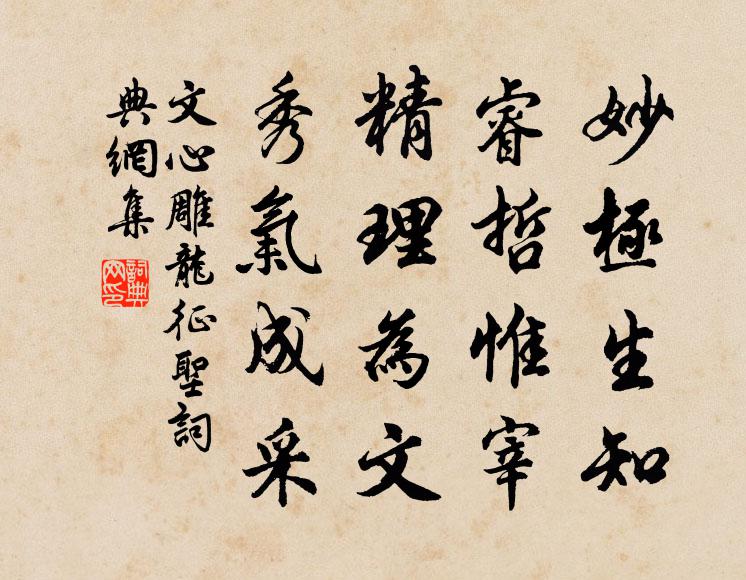 妙極生知
睿哲惟宰
精理為文
秀氣成采
文心雕龍征聖詞
典網集
詞典
网印